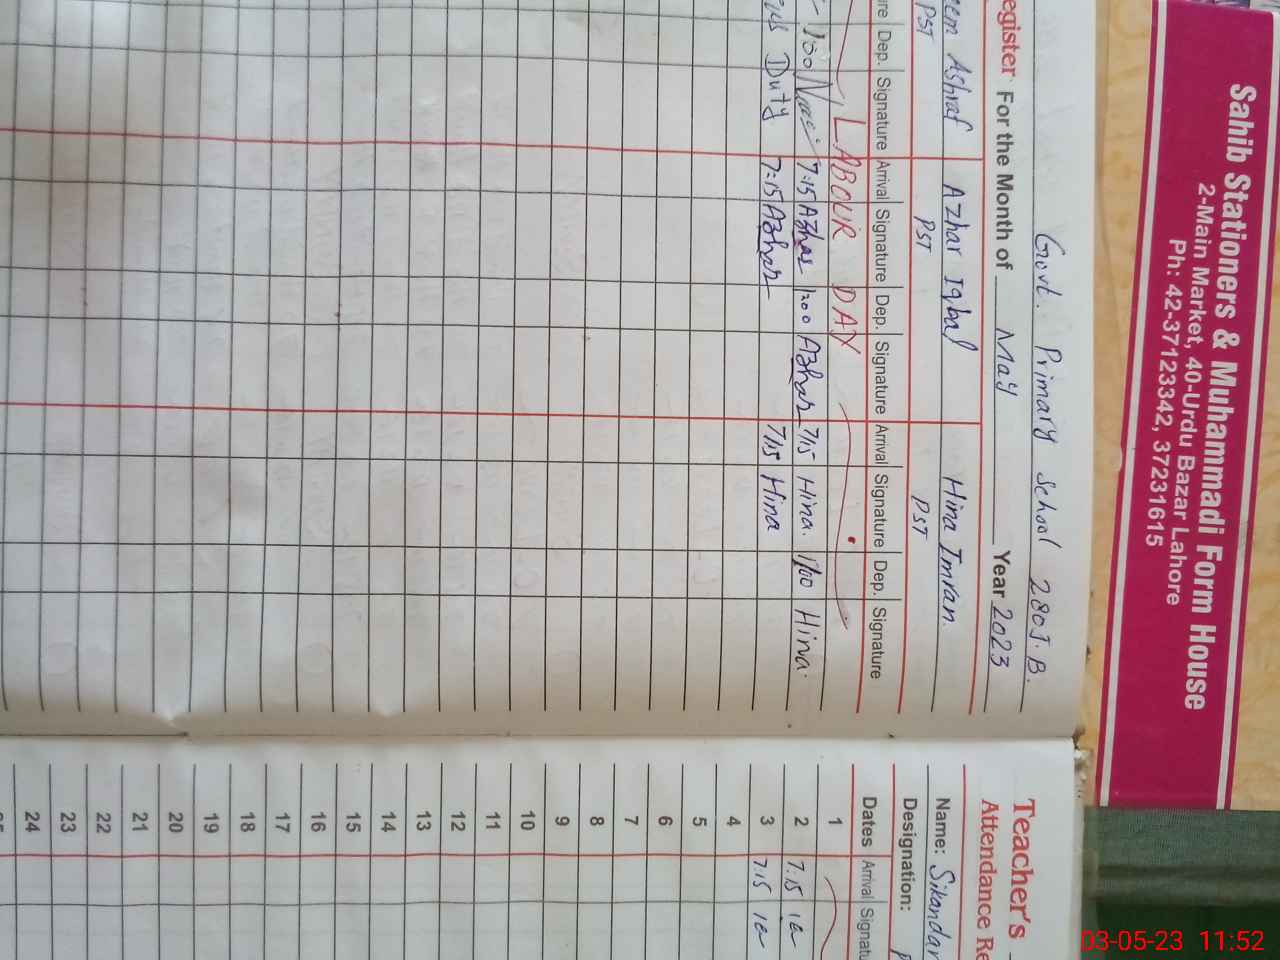 Sahib Stationers & Muhammadi Form House
2-Main Market, 40-Urdu Bazar Lahore
Ph: 42-37123342, 37231615
Govt. Primary School 280 J.B.
egister For the Month of May Year 2023
eem Ashraf Azhar Iqbal Hina Imran
PST PST PST
re Dep. Signature Arrival Signature Dep. Signature Arrival Signature Dep. Signature
LABOUR DAY
1:00 7:15 Azhar 1:00 Azhar 7:15 Hina. 1:00 Hina.
Duty 7:15 Azhar 7:15 Hina
Teacher's
Attendance Re
Name: Sikandar
Designation: P
Dates Arrival Signatu
1
2 7:15
3 7:15
4
5
6
7
8
9
10
11
12
13
14
15
16
17
18
19
20
21
22
23
24
03-05-23 11:52